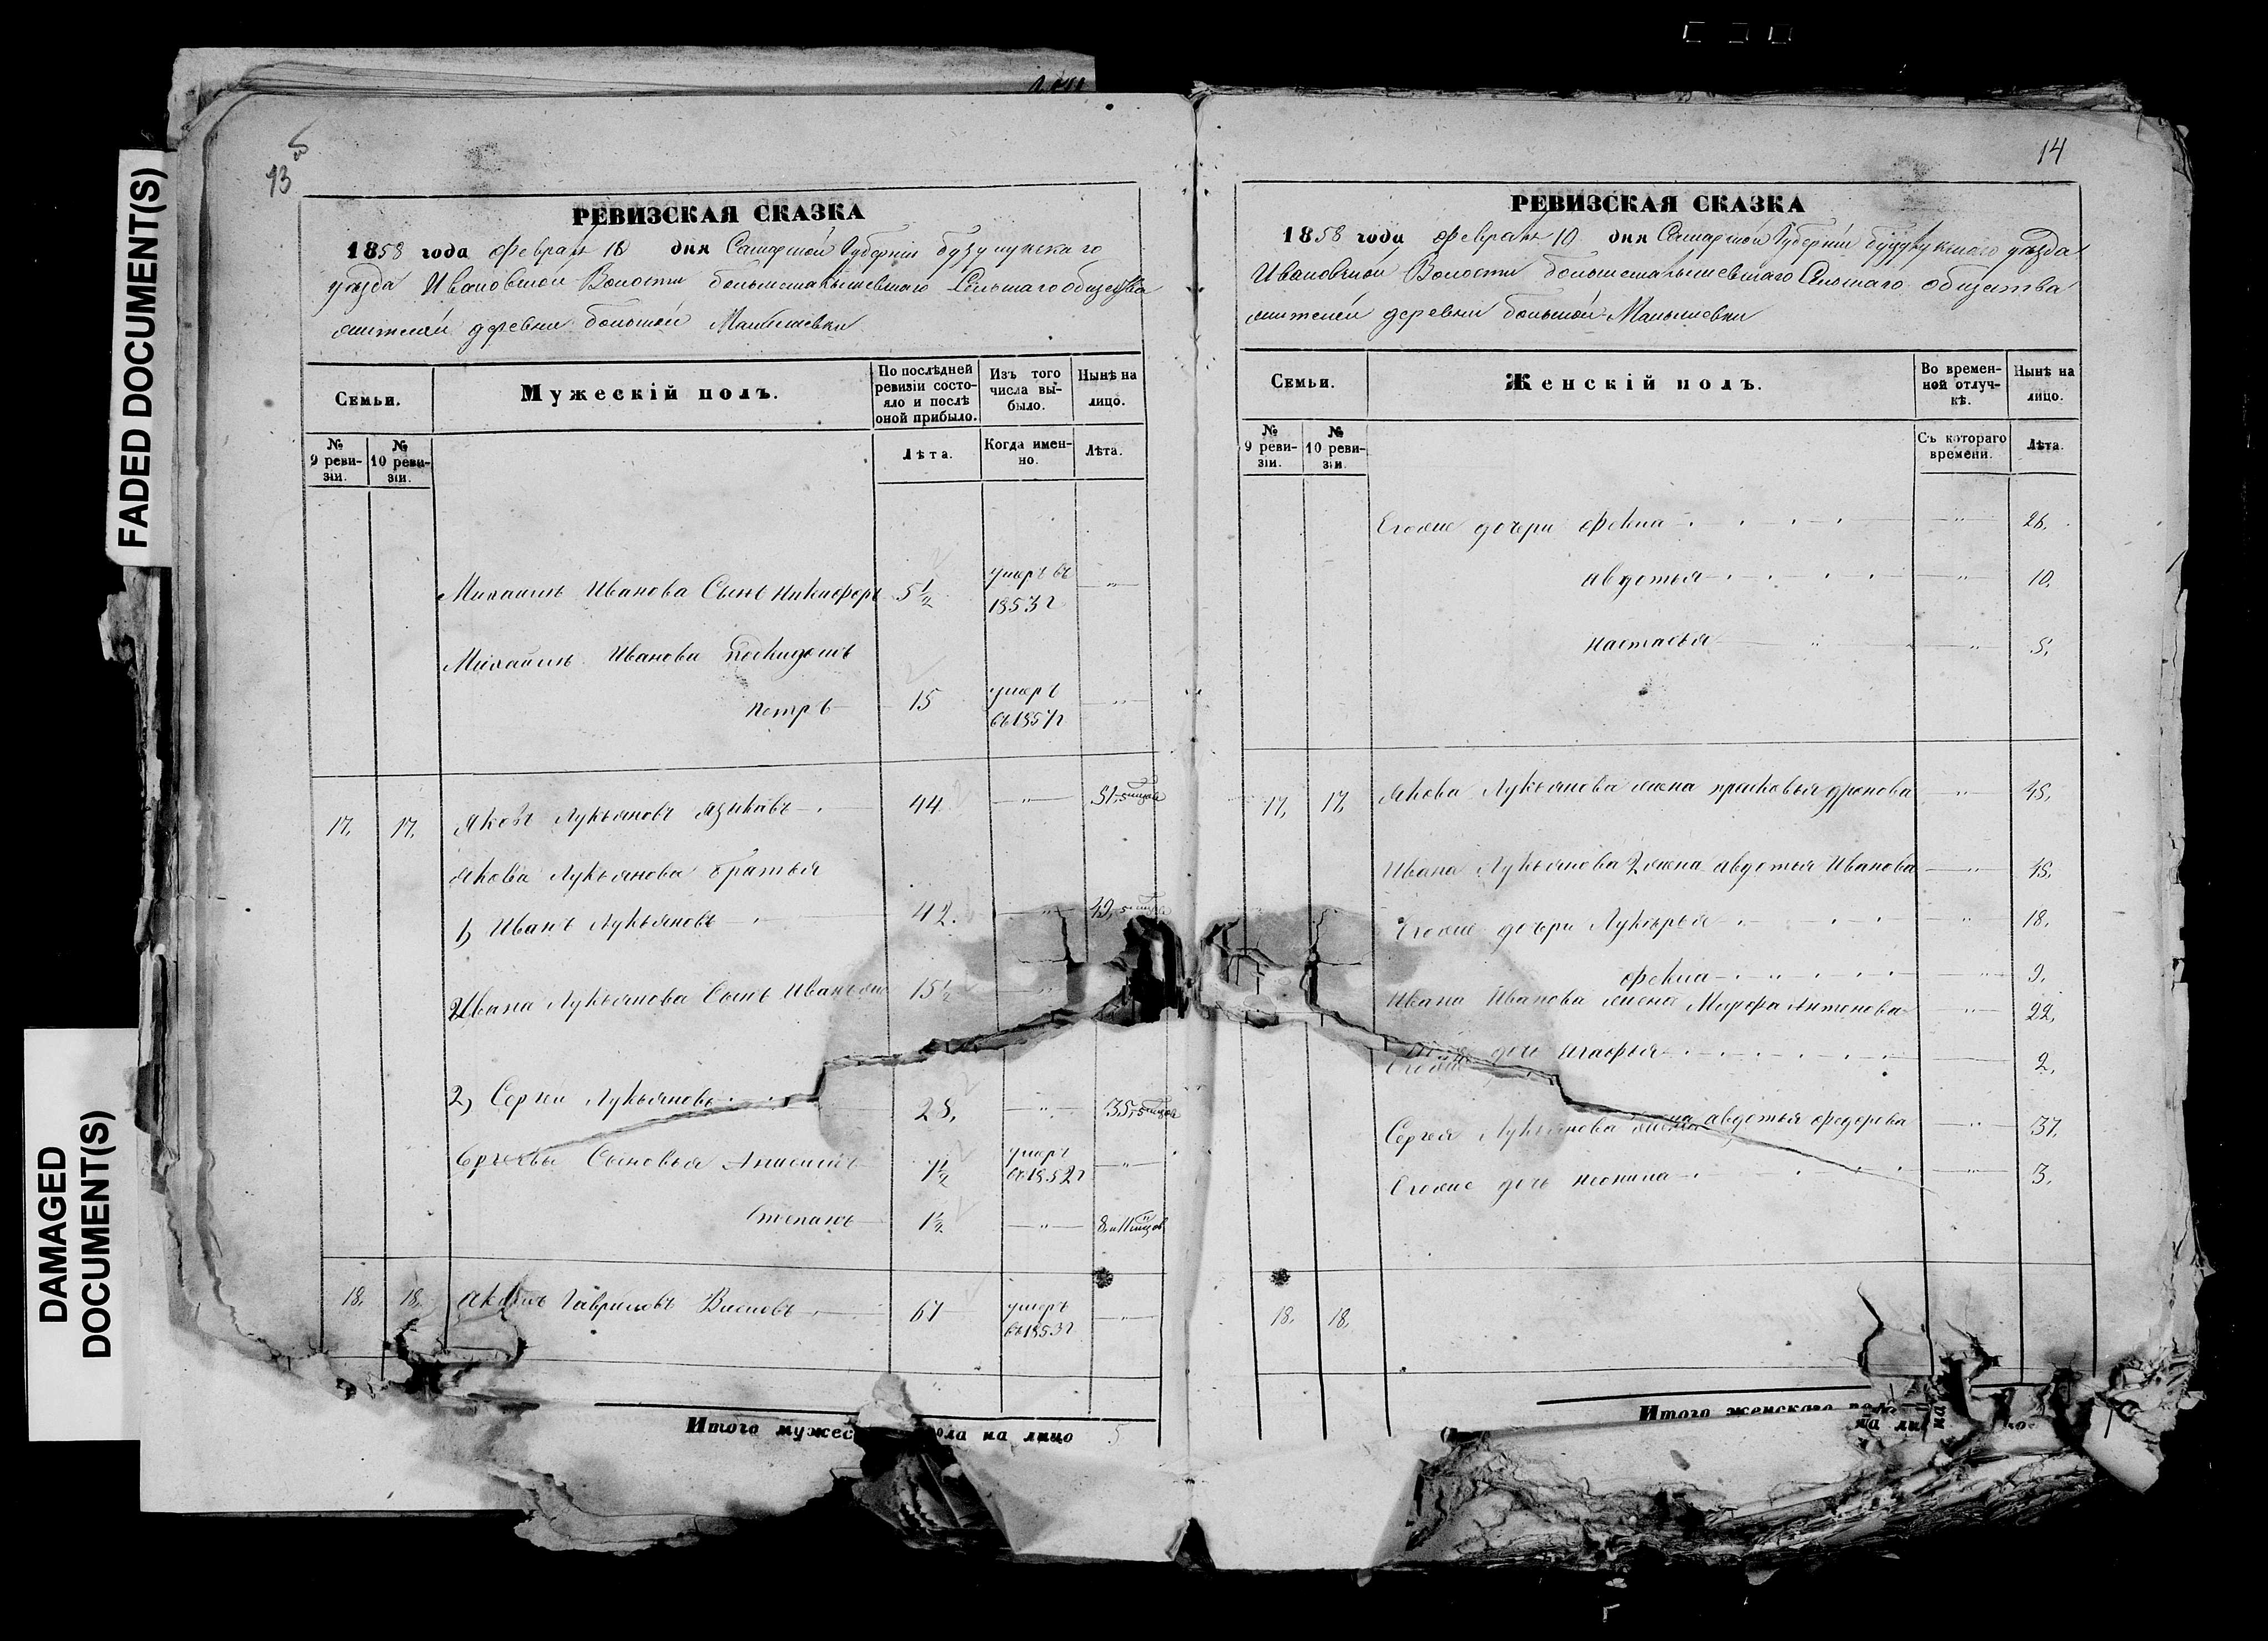 FADED DOCUMENT(S)
DAMAGED
DOCUMENT(S)
13
РЕВИЗСКАЯ СКАЗКА
1858 года февраля 10 дня Самарской Губернии бузулукскаго
уезда Ивановской Волости большемалышевскаго Сельскаго общества
жителей деревни большой Малышевки
Семьи.
Мужескій полъ.
По послѣдней ревизіи состояло и послѣ оной прибыло.
Изъ того числа выбыло.
Нынѣ на лицо.
№ 9 ревизіи.
№ 10 ревизіи.
Лѣта.
Когда именно.
Лѣта.
Михаилъ Иванова Сынъ Никифоръ 5½ умеръ въ 1853 г
Михаилъ Иванова
петръ 15 умеръ въ 1857 г
17. 17. Яковъ Лукьяновъ 44 51
Якова Лукьянова братья
1, Иванъ Лукьяновъ 42. 49
Ивана Лукьянова Сынъ Иванъ 15½
2, Сергей Лукьяновъ 28, 35
Сыновья 7½ умеръ въ 1852 г
Степанъ 1½ 8
18. 18. Гавриловъ 67 умеръ въ 1853 г
Итого мужес ола на лицо 5
14
РЕВИЗСКАЯ СКАЗКА
1858 года февраля 10 дня Самарской Губернии бузулукскаго уезда
Ивановской Волости большемалышевскаго Сельскаго общества
жителей деревни большой Малышевки
Семьи.
Женскій полъ.
Во временной отлучкѣ.
Нынѣ на лицо.
№ 9 ревизіи.
№ 10 ревизіи.
Съ котораго времени.
Лѣта.
Егоже дочери фекла 26.
авдотья 10.
настасья 5.
17, 17, Якова Лукьянова жена прасковья 45.
Ивана Лукьянова 2 жена авдотья Иванова 45.
Егоже дочери Лукерья 18.
фекла 9.
Ивана Иванова жена Марфа Антонова 22,
Егоже дочь Агафья 2,
Сергея Лукьянова жена авдотья федорова 37,
Егоже дочь 3.
18. 18.
Итого женскаго пола
на ли